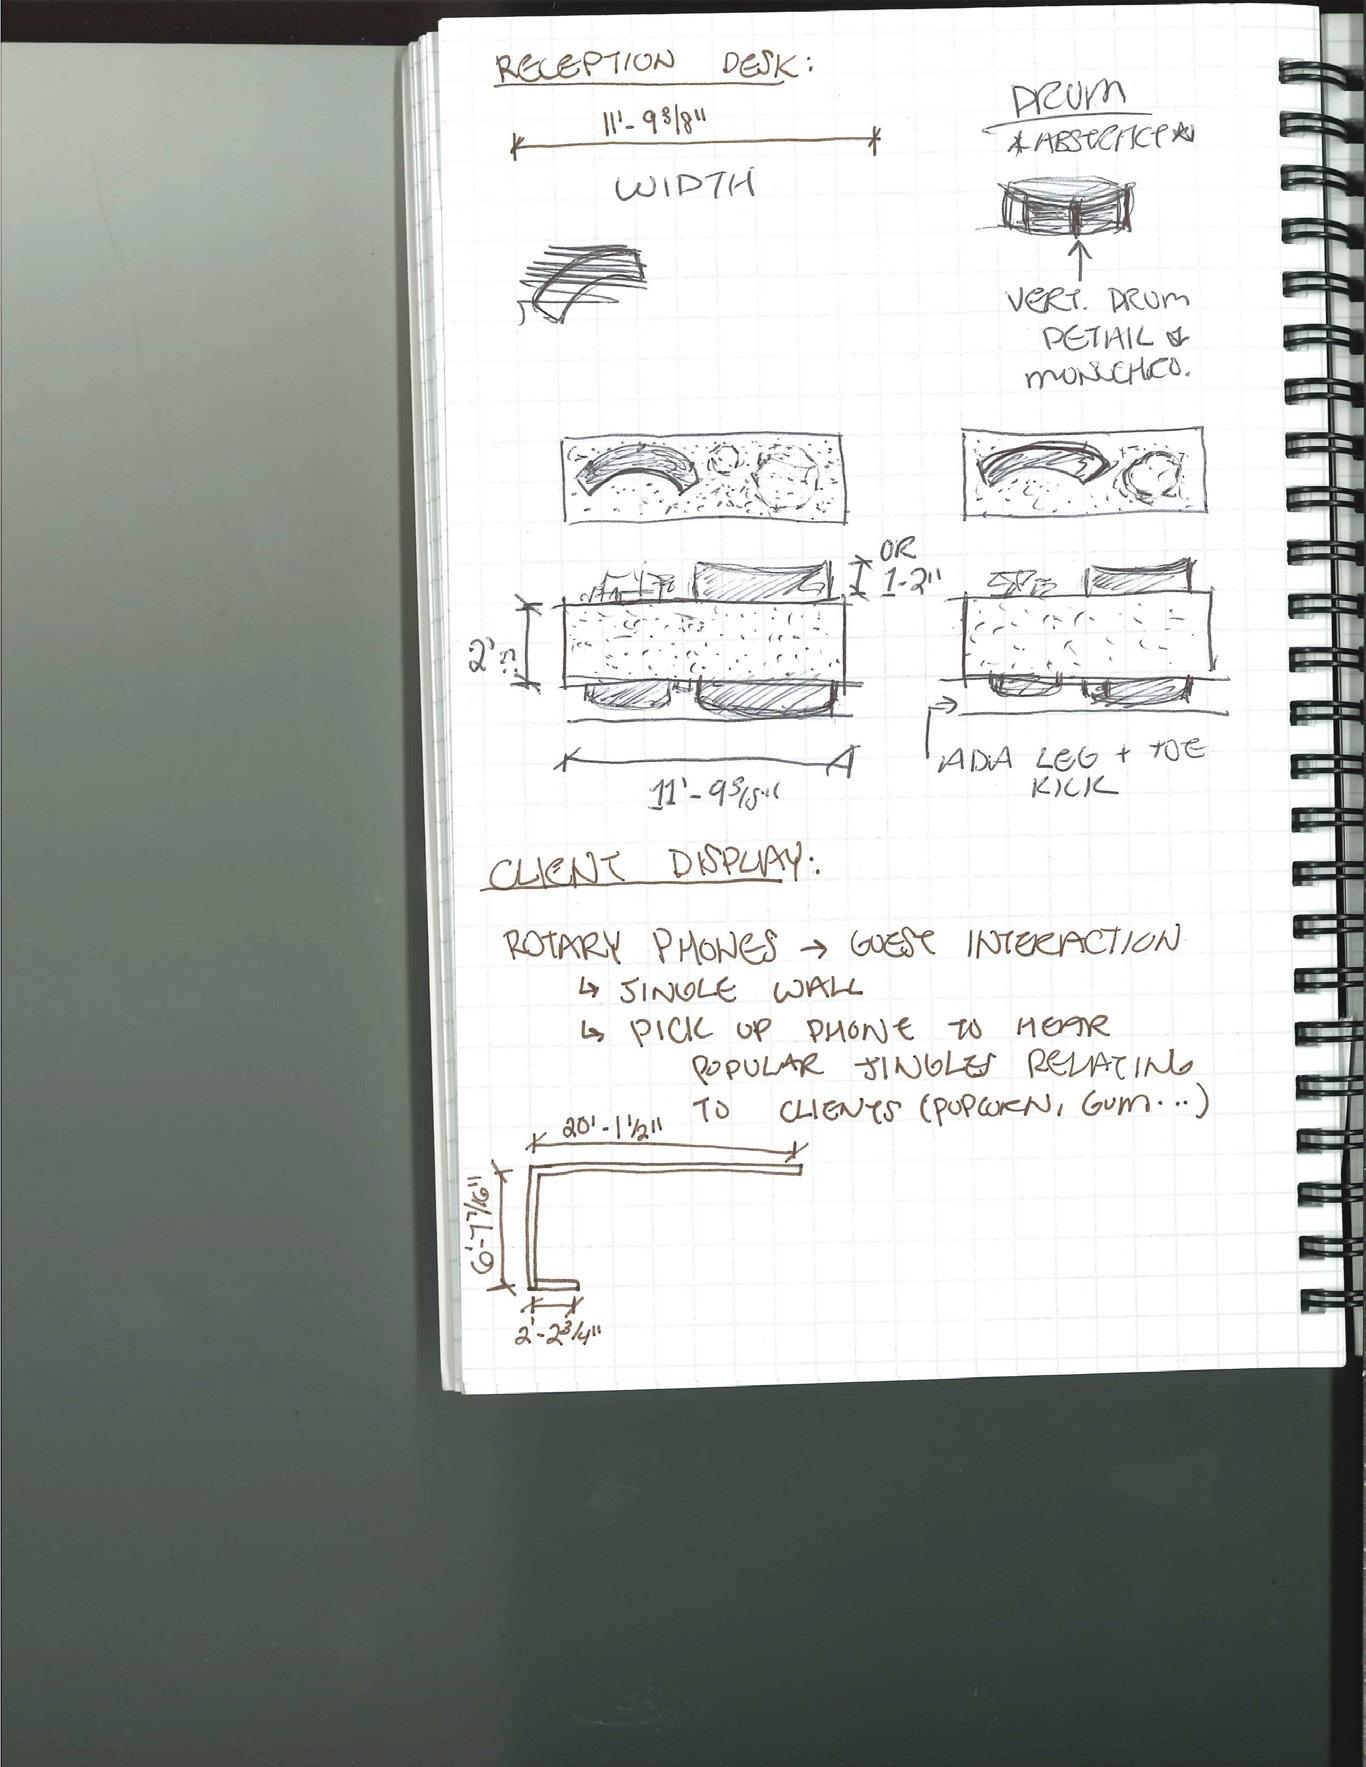 RECEPTION DESK:
11'-9 3/8"
WIDTH
DRUM
*ABSTRACT*
VERT. DRUM
DETAIL &
MONOCHRO.
OR
1-2"
2'
??
11'-9 3/8"
ADA LEG + TOE
KICK
CLIENT DISPLAY:
ROTARY PHONES → GUEST INTERACTION
↳ JINGLE WALL
↳ PICK UP PHONE TO HEAR
POPULAR JINGLES RELATING
TO CLIENTS (POPCORN, GUM...)
20'-1 1/2"
6'-7 7/16"
2'-2 3/4"